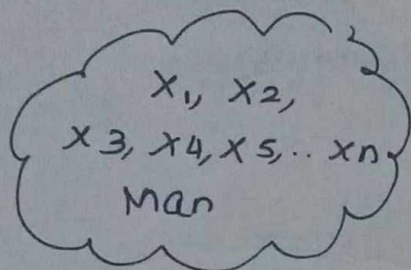 X1, X2,
X3, X4, X5, .. Xn
Man